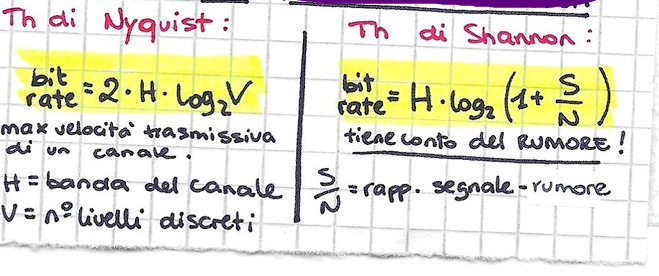 Th di Nyquist:
bit rate = 2 · H · log₂V
max velocità trasmissiva
di un canale.
H = banda del canale
V = n° livelli discreti
Th di Shannon:
bit rate = H · log₂ (1 + S/N)
tiene conto del RUMORE!
S/N = rapp. segnale-rumore